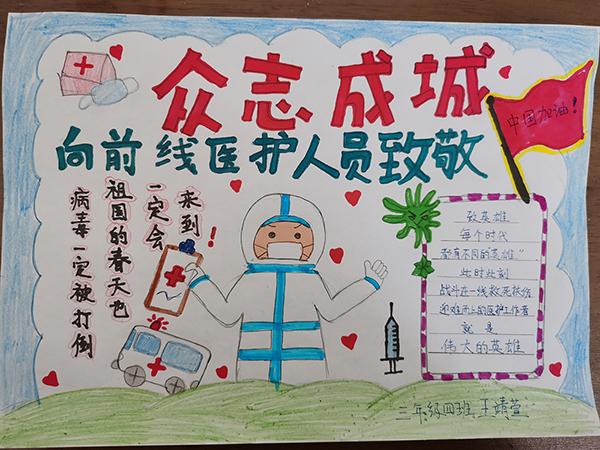 众志成城
向前线医护人员致敬
中国加油！
病毒一定被打倒
祖国的春天也
一定会
来到！
致英雄
每个时代
都有不同的英雄”
此时此刻
战斗在一线救死扶伤
迎难而上的医护工作者
就是
伟大的英雄
三年级四班 王靖萱